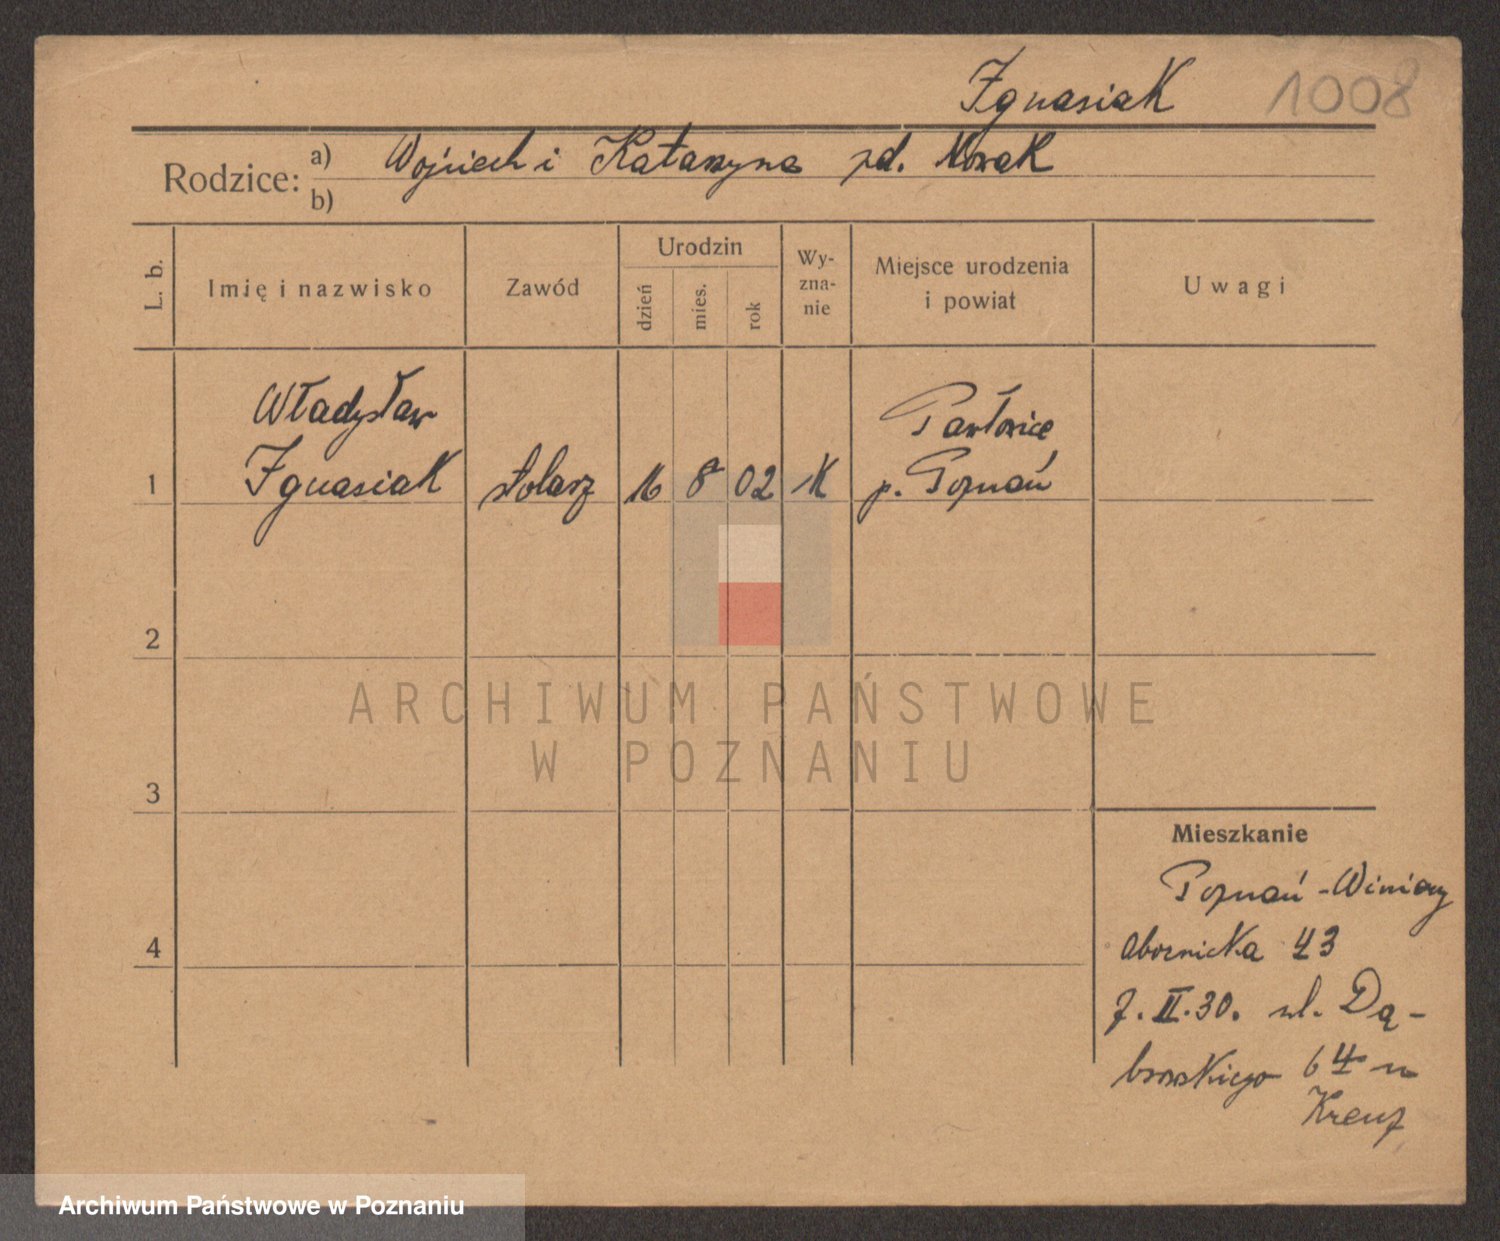 Ignasiak 1008
Rodzice: a) Wojciech i Katarzyna zd. Nowak
b)
L. b.
Imię i nazwisko
Zawód
Urodzin
dzień
mies.
rok
Wy-
zna-
nie
Miejsce urodzenia
i powiat
Uwagi
Władysław
Pawłowice
1 Ignasiak stolarz 16 8 02 K p. Poznań
2
3
4
ARCHIWUM PAŃSTWOWE
W POZNANIU
Mieszkanie
Poznań-Winiary
Obornicka 43
7.II.30. ul. Dą-
browskiego 64 u
Kreuz
Archiwum Państwowe w Poznaniu